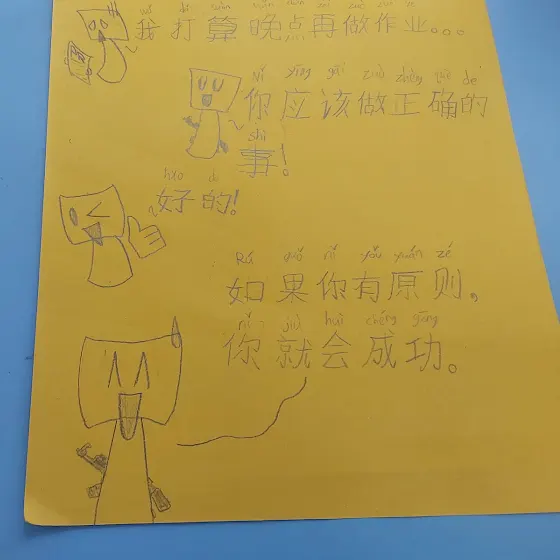 wǒ dǎ suàn wǎn diǎn zài zuò zuò yè
我打算晚点再做作业。。。
Nǐ yīng gāi zuò zhèng què de
你应该做正确的
shì
事!
hǎo de
好的!
Rú guǒ nǐ yǒu yuán zé
如果你有原则,
nǐ jiù huì chéng gōng
你就会成功。